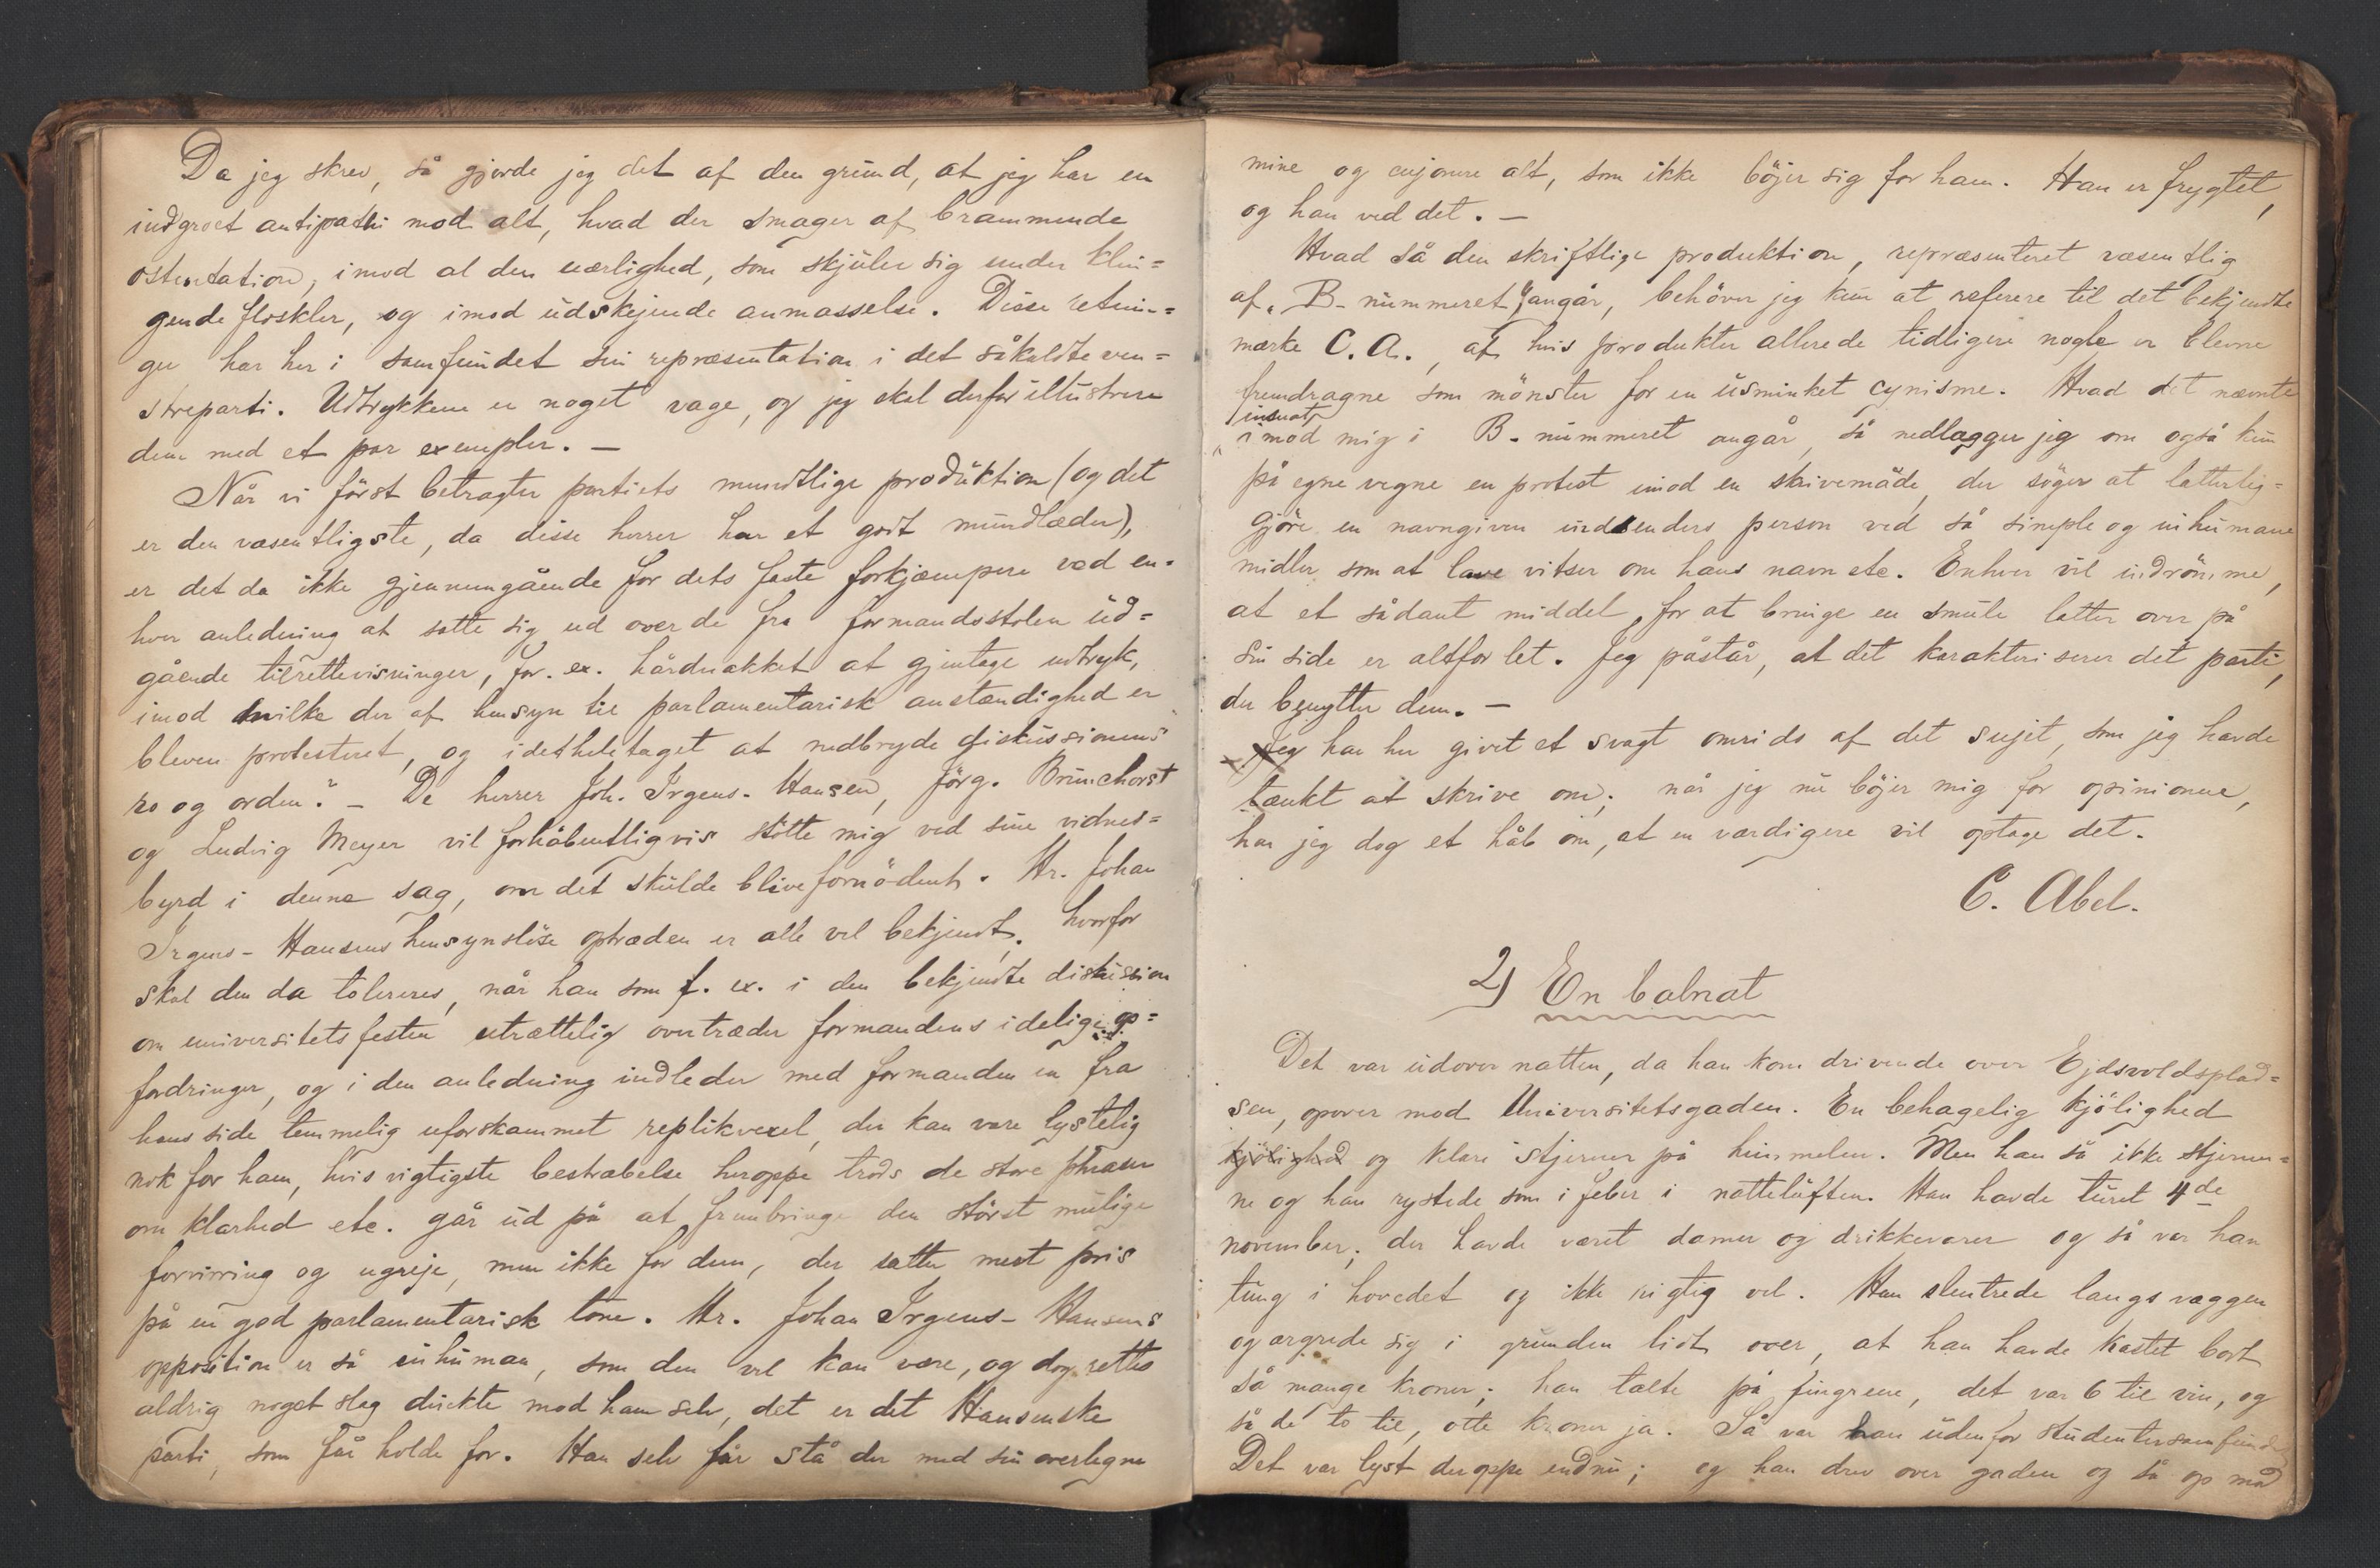 Da jeg skrev, så gjorde jeg det af den grund, at jeg har en
indgroet antipathi mod alt, hvad der smager af brammende
ostentation, imod al den uærlighed, som skjuler sig under klin=
gende floskler, og imod udskejende anmasselse. Disse retnin=
ger har her i samfundet sin repræsentation i det såkaldte ven=
streparti. Udtrykkene er noget vage, og jeg skal derfor illustrere
dem med et par exempler. —
Når vi först betragter partiets mundtlige produktion (og det
er den væsentligste, da disse herrer har et godt mundlæder),
er det da ikke gjennemgående for dets faste forkjæmpere ved en=
hver anledning at sætte sig ud over de fra formandsstolen ud=
gående tilrettevisninger, for. ex. hårdnakket at gjentage udtryk,
imod hvilke der af hensyn til parlamentarisk anstændighed er
bleven protesteret, og idetheletaget at nedbryde diskussionens
ro og orden? — De herrer Joh. Irgens-Hansen, Jörg. Brunchorst
og Ludvig Meyer vil forhåbentligvis stötte mig ved sine vidnes=
byrd i denne sag, om det skulde blive fornödent. Hr. Johan
Irgens-Hansens hensynslöse optræden er alle vel bekjendt, hvorfor
skal den da tolereres, når han som f. ex. i den bekjendte diskusion
om universitetsfesten utrættelig overtræder formandens idelige op=
fordringer, og i den anledning indleder med formanden en fra
hans side temmelig uforskammet replikvexel, der kan være lystelig
nok for ham, hvis vigtigste bestræbelse heroppe trods de store phraser
om klarhed etc. går ud på at frembringe den störst mulige
forvirring og ugreje, men ikke for dem, der sætter mest pris
på en god parlamentarisk tone. Hr. Johan Irgens-Hansens
opposition er så inhuman, som den vel kan være, og dog rettes
aldrig noget slag direkte mod ham selv, det er det Hansenske
parti, som får holde for. Han selv får stå der med sin overlegne
mine og cujonere alt, som ikke böjer sig for ham. Han er frygtet,
og han ved det. —
Hvad så den skriftlige produktion, repræsenteret væsentlig
af "B-nummeret" angår, behöver jeg kun at referere til det bekjendte
mærke C. A., af hvis produkter allerede tidligere nogle er blevne
fremdragne som mönster for en usminket cynisme. Hvad det nævnte
imod mig i B-nummeret angår, så nedlægger jeg om også kun
på egne vegne en protest imod en skrivemåde, der söger at latterlig=
gjöre en navngiven indsenders person ved så simple og inhumane
midler som at lave vitser om hans navn etc. Enhver vil indrömme,
at et sådant middel, for at bringe en smule latter over på
sin side er altfor let. Jeg påstår, at det karakteriserer det parti,
der benytter dem. —
Jeg har her givet et svagt omrids af det sujet, som jeg havde
tænkt at skrive om; når jeg nu böjer mig for opinionen,
har jeg dog et håb om, at en værdigere vil optage det.
C. Abel.
2) En balnat
Det var udover natten, da han kom drivende over Ejdsvoldsplad=
sen, opover mod Universitetsgaden. En behagelig kjölighed
kjölighed og klare stjerner på himmelen. Men han så ikke stjerner=
ne og han rystede som i feber i natteluften. Han havde turet 4de
november; der havde været damer og drikkevarer og så var han
tung i hovedet og ikke rigtig vel. Han slentrede langs væggen
og ærgrede sig i grunden lidt over, at han havde kastet bort
så mange kroner; han talte på fingrene, det var 6 til vin, og
så de to til, otte kroner ja. Så var han udenfor studentersamfundet
Det var lyst deroppe endnu; og han drev over gaden og så op mod